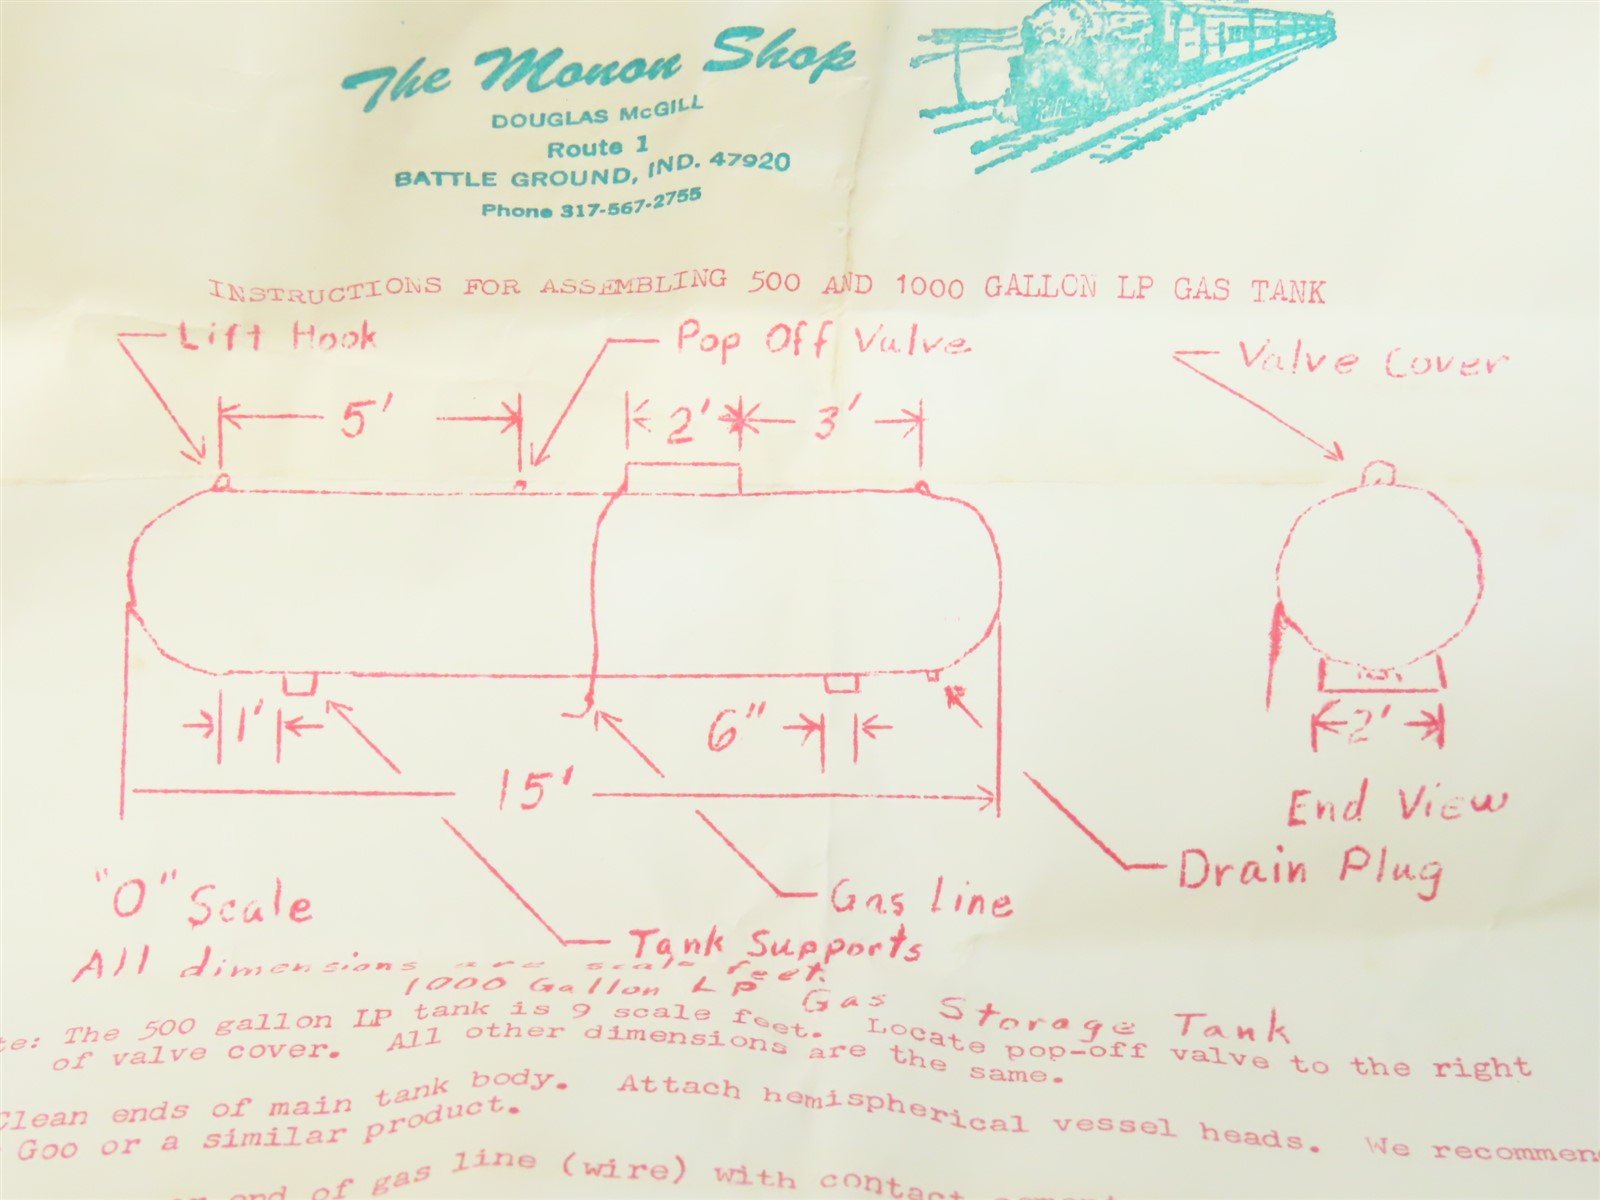 The Monon Shop
DOUGLAS McGILL
Route 1
BATTLE GROUND, IND. 47920
Phone 317-567-2755
INSTRUCTIONS FOR ASSEMBLING 500 AND 1000 GALLON LP GAS TANK
Lift Hook
Pop Off Valve
Valve Cover
5'
2'
3'
1'
6"
2'
15'
End View
Drain Plug
"O" Scale
Gas Line
Tank Supports
All dimensions are scale feet.
1000 Gallon LP Gas Storage Tank
te: The 500 gallon LP tank is 9 scale feet. Locate pop-off valve to the right
of valve cover. All other dimensions are the same.
Clean ends of main tank body. Attach hemispherical vessel heads. We recommen
Goo or a similar product.
end of gas line (wire) with contact